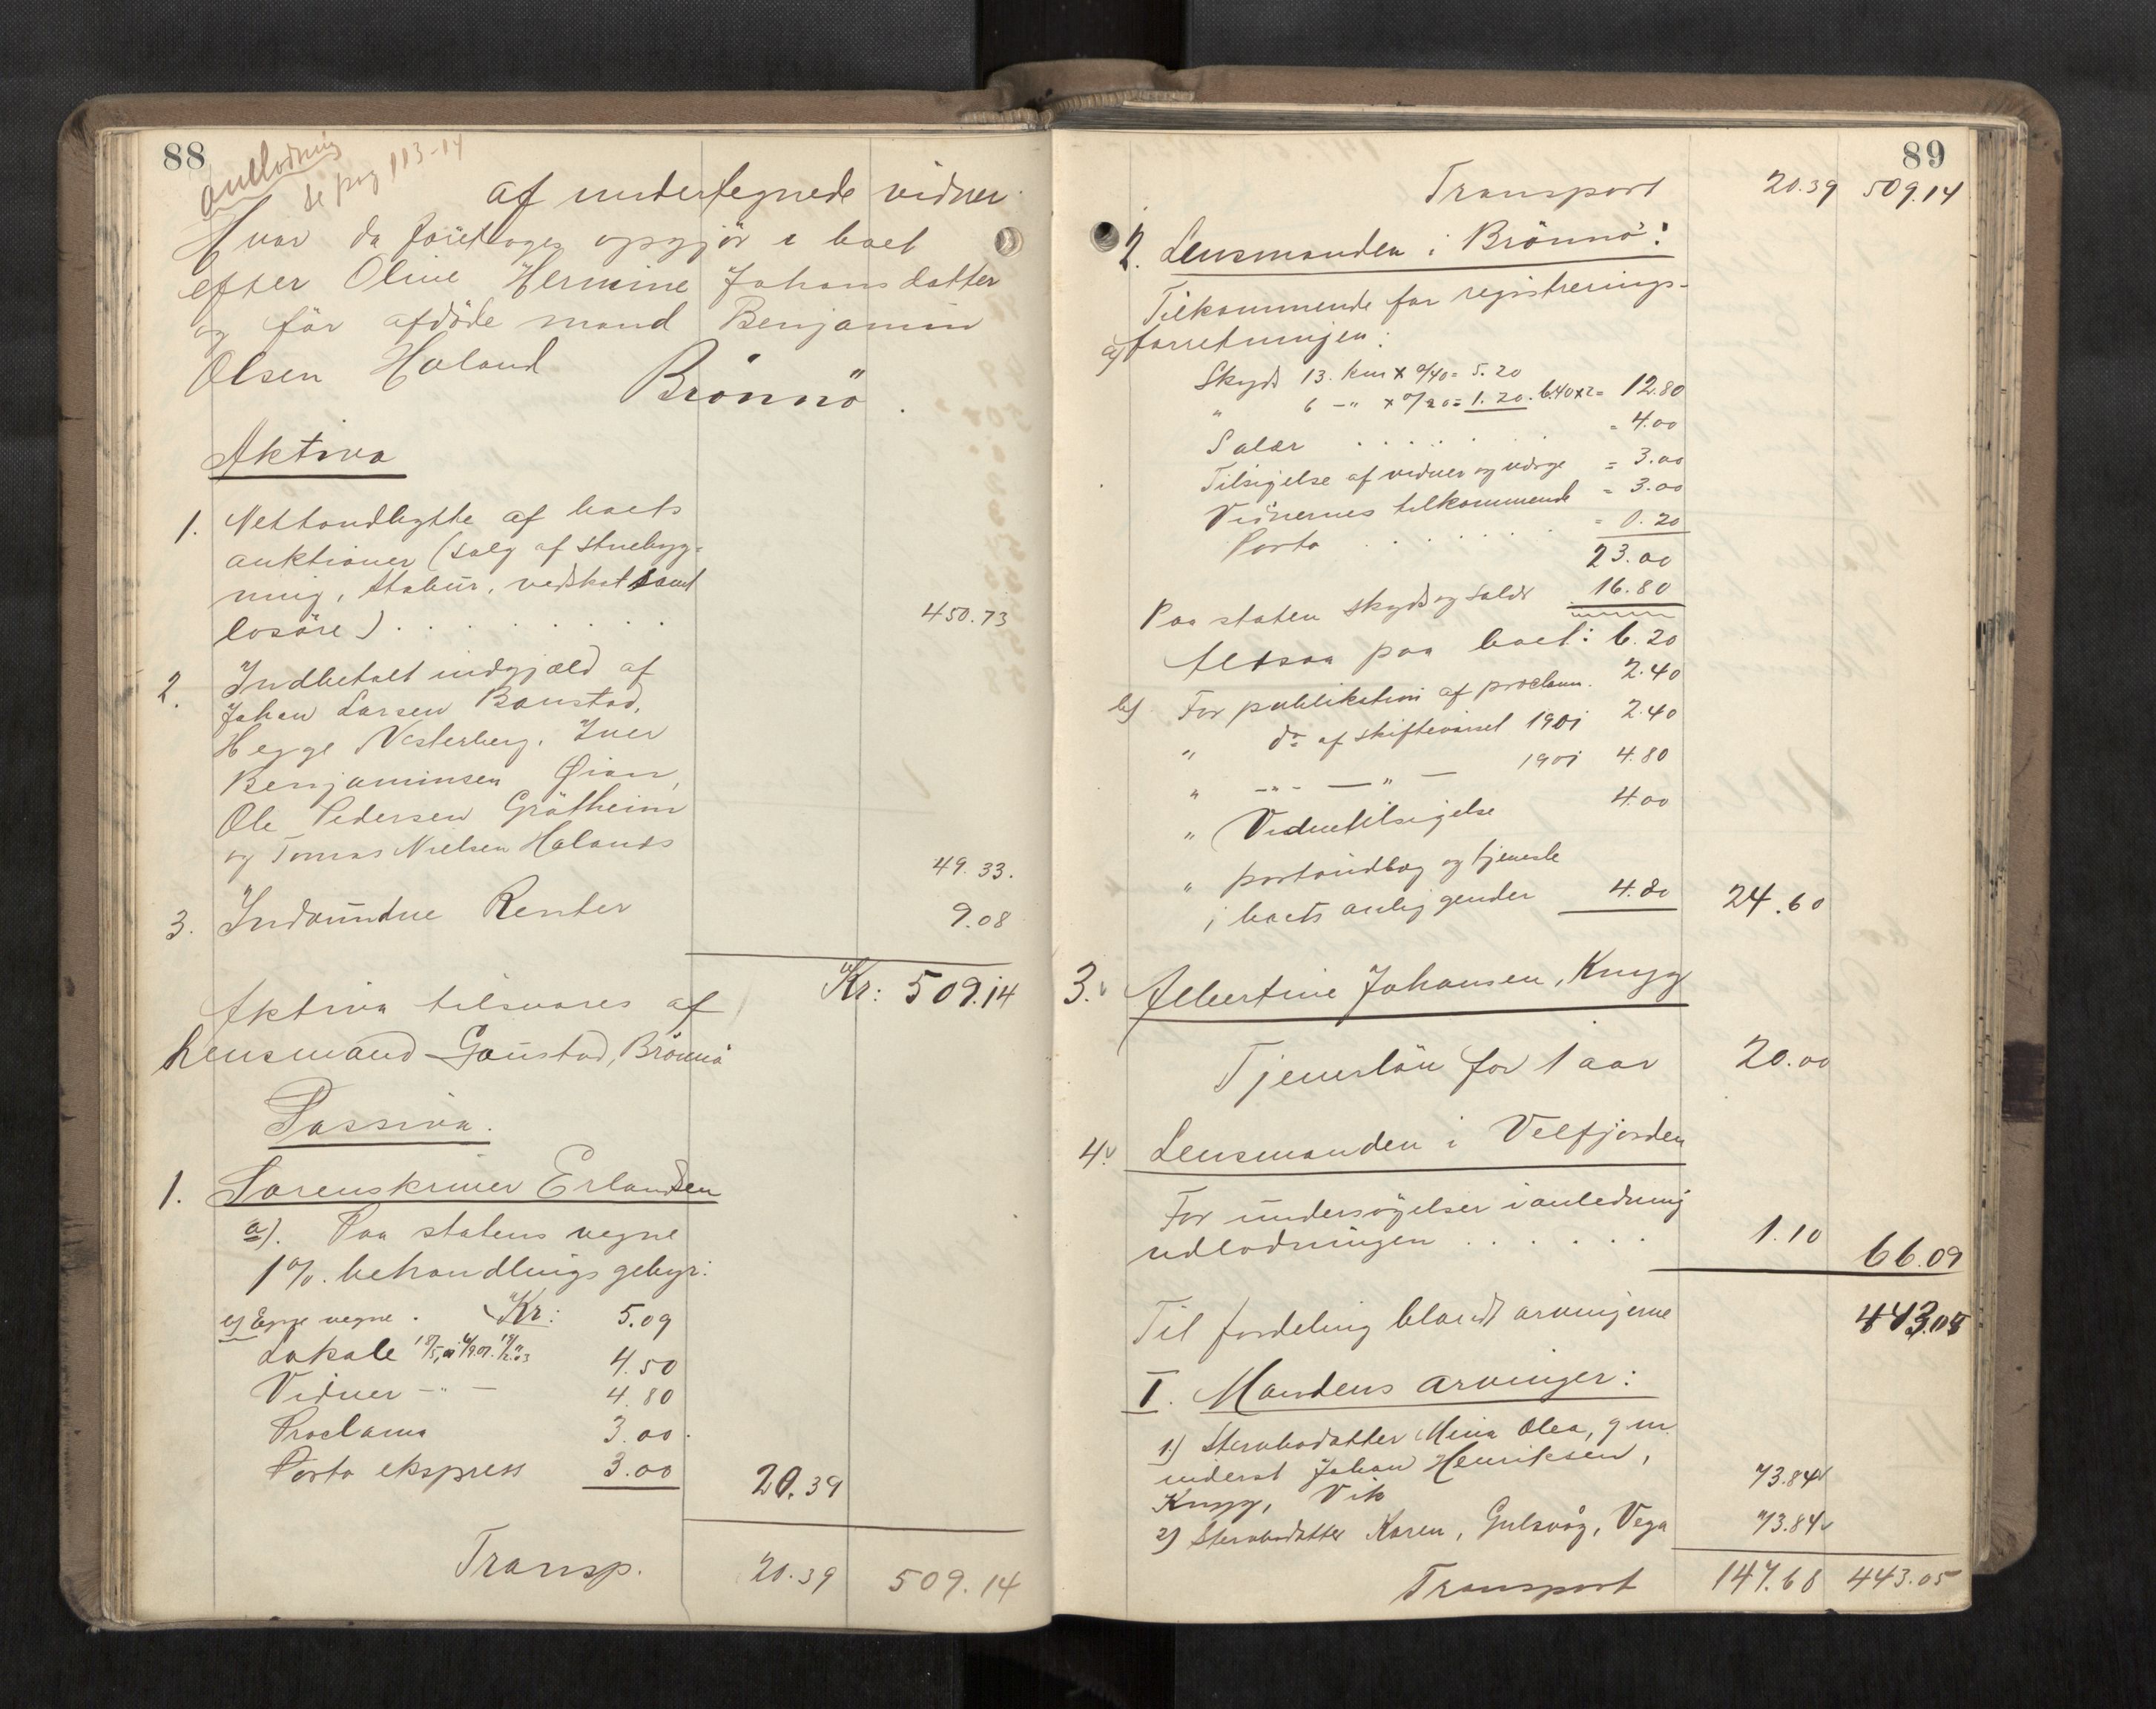 88
se pag 113-14
af undertegnede vidner.
Hvor da foretoges opgjör i boet
efter Oline Hermine Johansdatter
og för afdöde mand Benjamin
Olsen Holand Brönnö.
Aktiva
1. Nettoudbytte af boets
auktioner (salg af stuebyg-
ning, stabur, vedskot samt
losöre) . . . . . . . . 450.73
2. Indbetalt indgjæld af
Johan Larsen Baustad,
Hegge Vesterberg, Iver
Benjaminsen Øian,
Ole Pedersen Gråtheim
og Tomas Nielsen Holands 49.33.
3. Indvundne Renter 9.08
Kr: 509.14
Aktiva tilsvares af
lensmand Gaustad, Brönnö
Passiva.
1. Sorenskriver Erlandsen
a). Paa statens vegne
1%. behandlings gebyr:
Kr: 5.09
b) Egne vegne.
Lokale 4.50
Vidner -"- 4.80
Proclama 3.00.
Porto ekspress 3.00 20.39
Transp. 20.39 509.14
89
Transport 20.39 509.14
2. Lensmanden i Brönnö:
Tilkommende for registrerings-
a) forretningen:
Skyds 13. km x 0/40 = 5.20
" 6 -" x 0/20 = 1.20. 6.40x2 = 12.80
Salær . . . . . . = 4.00
Tilsigelse af vidner og værge = 3.00
Vidnernes tilkommende = 3.00
Porto . . . . . . = 0.20
23.00
Paa staten skyds og salær 16.80
Altsaa paa boet: 6.20
b) For publikation af proclam. 2.40
" do af skiftevarsel 1901 2.40
" -"- -"- 1901 4.80
" Vidnetilsigelse 4.00
" portoudlæg og tjeneste
i boets anliggender 4.80 24.60
3. Albertine Johansen, Knyg
Tjenerlön for 1 aar 20.00
4. Lensmanden i Velfjorden
For undersögelser i anledning
udlodningen . . . . . . 1.10 66.09
Til fordeling blandt arvingerne 443.05
I. Mandens arvinger:
1.) Stervbodatter Mina Olea, g.m.
inderst Johan Henriksen,
Knyg, Vik 73.84
2) Stervbodatter Karen, Gulsvåg, Vega 73.84
Transport 147.68 443.05